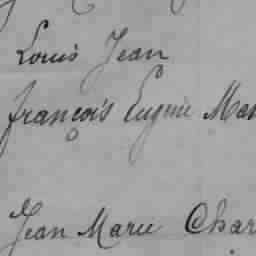 Louis Jean
françois Eugène
Jean Marie Char